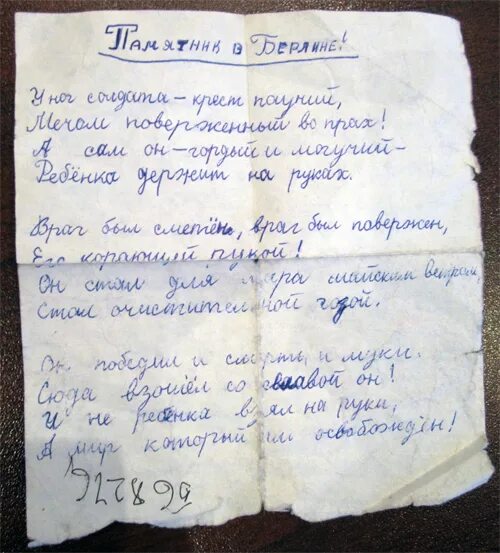 Памятник в Берлине!
У ног солдата – крест паучий,
Мечом поверженный во прах!
А сам он – гордый и могучий –
Ребёнка держит на руках.
Враг был сметён, враг был повержен,
Его корающей рукой!
Он стал для мира майским ветром,
Стал очистительной грозой.
Он победил и смерть и муки.
Сюда взошёл со славой он!
И не ребёнка взял на руки,
А мир который им освобождён!
568276